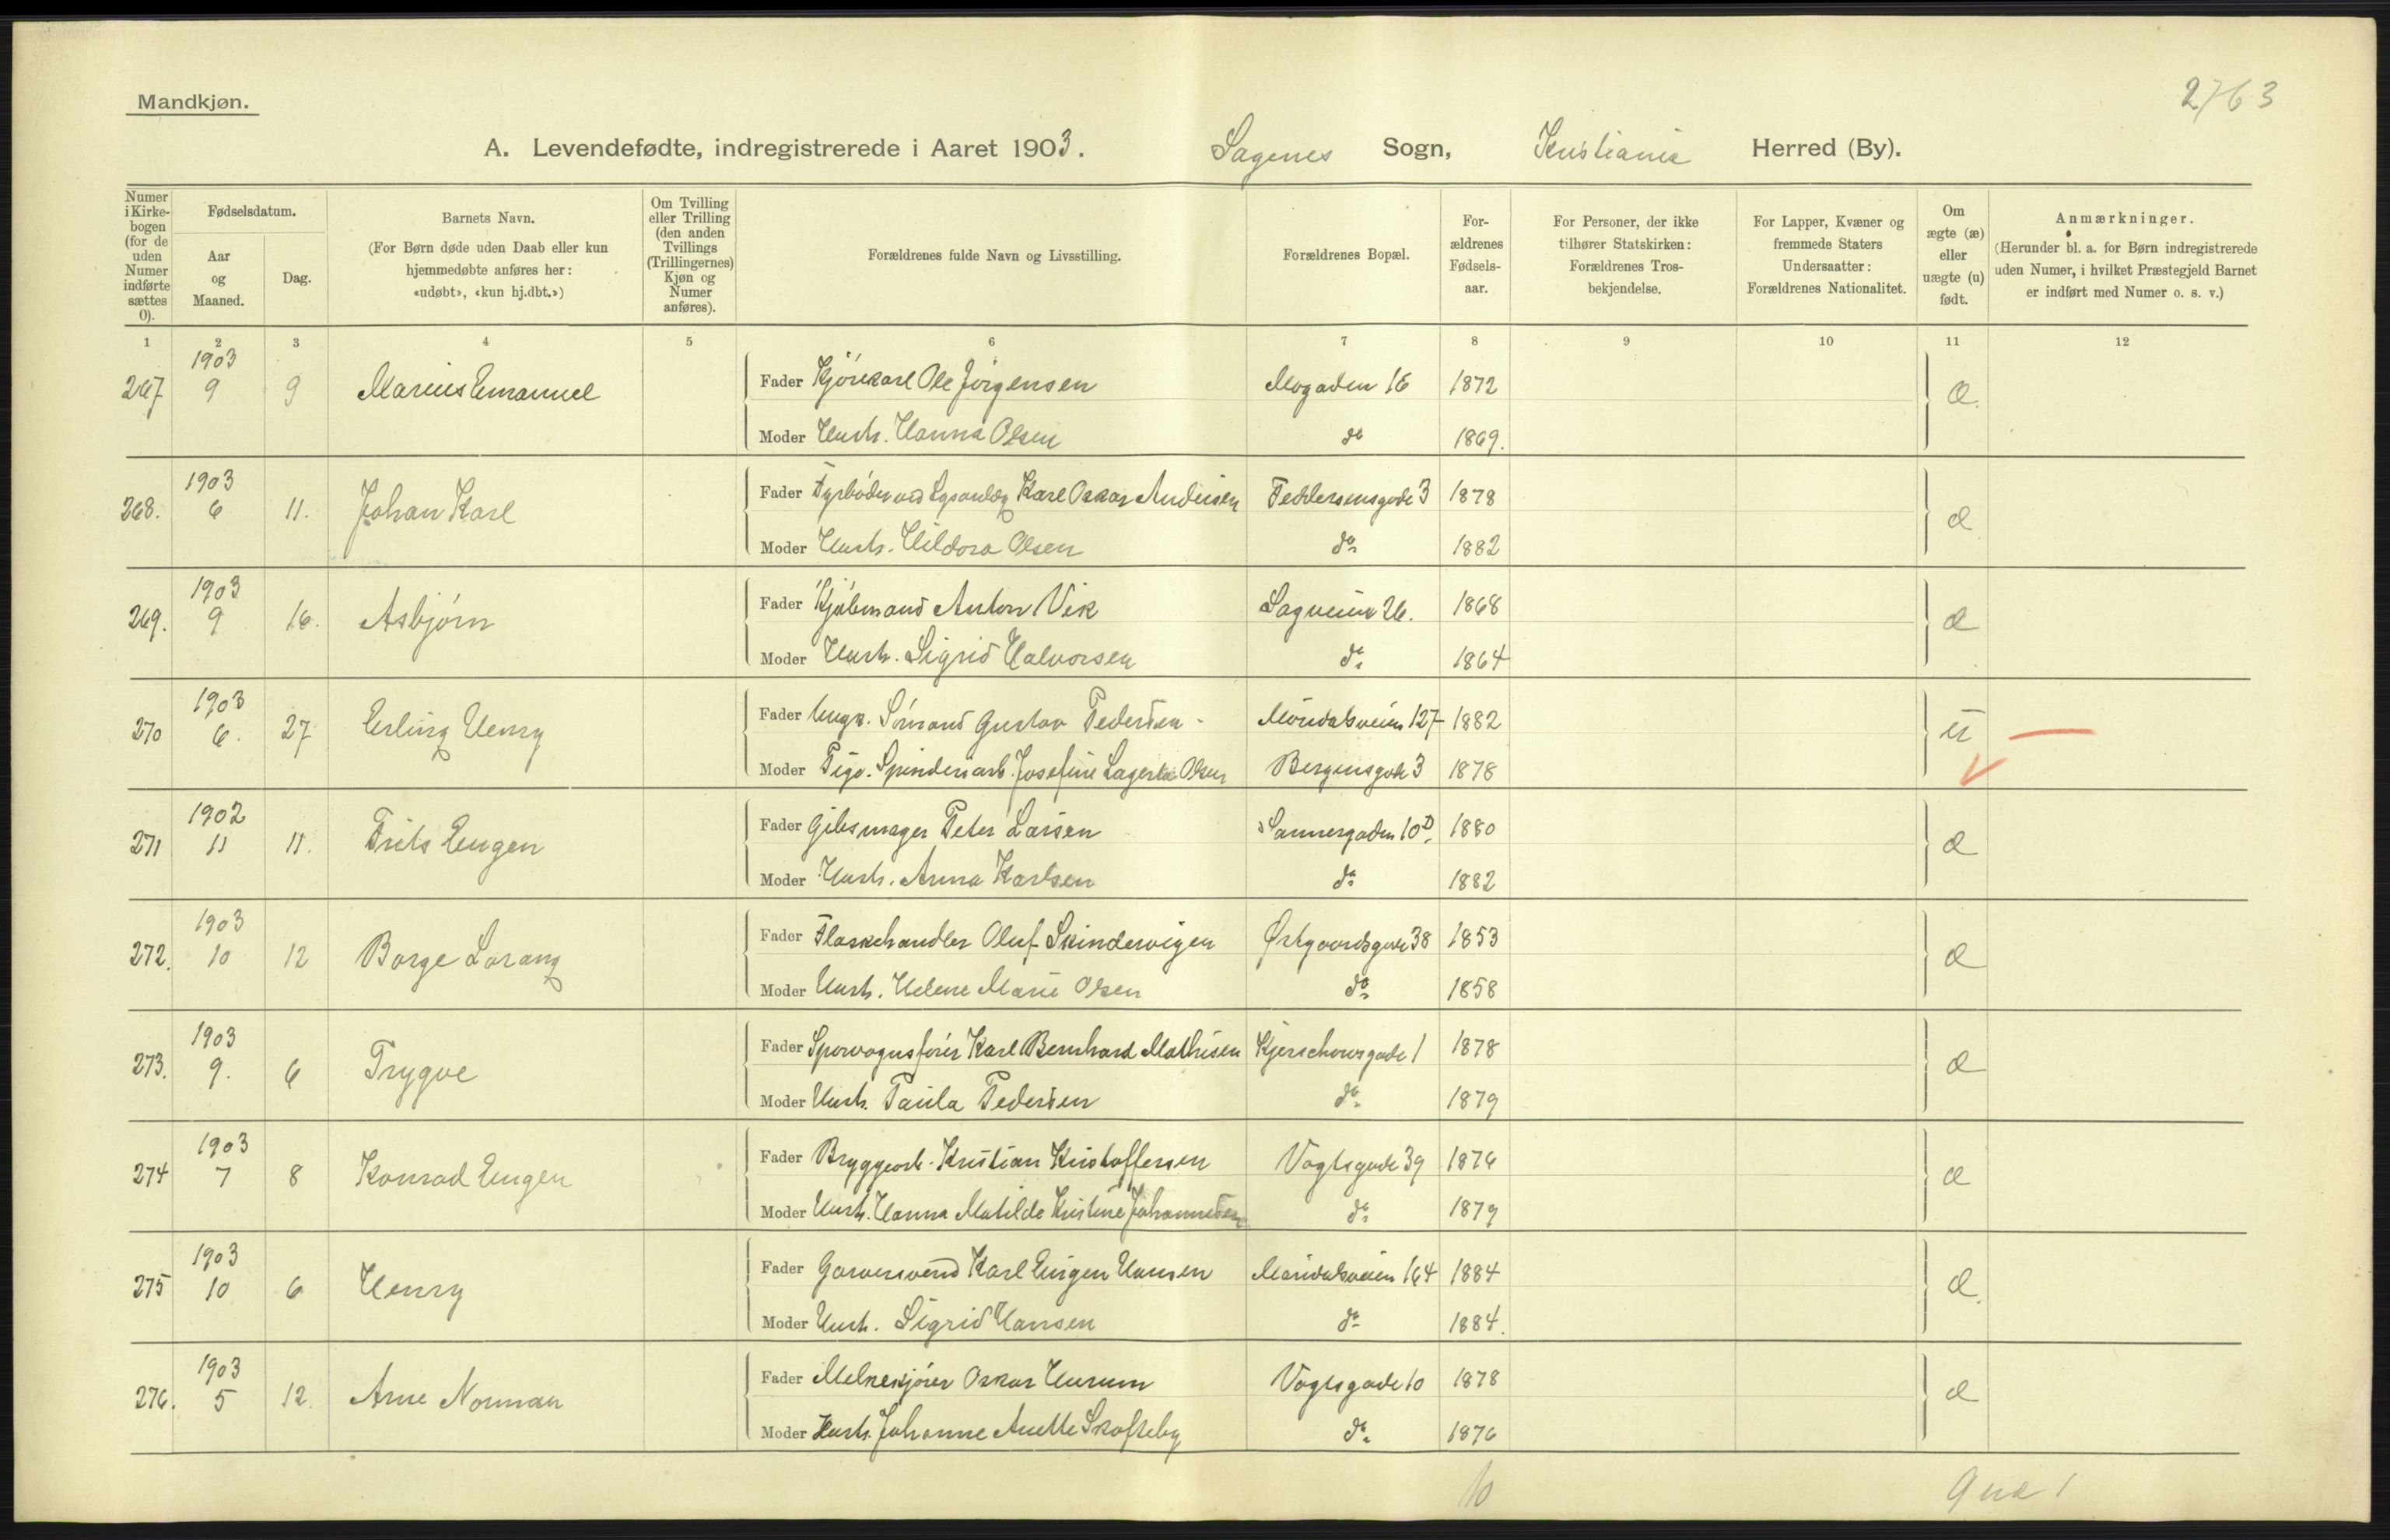 2763
Mandkjøn.
A. Levendefødte, indregistrerede i Aaret 1903. Sagenes Sogn, Kristiania Herred (By).
Numer i Kirkebogen (for de uden Numer indførte sættes 0).
Fødselsdatum.
Aar og Maaned.
Dag.
Barnets Navn.
(For Børn døde uden Daab eller kun hjemmedøbte anføres her: «udøbt», «kun hj.dbt.»)
Om Tvilling eller Trilling (den anden Tvillings (Trillingernes) Kjøn og Numer anføres).
Forældrenes fulde Navn og Livsstilling.
Forældrenes Bopæl.
Forældrenes Fødselsaar.
For Personer, der ikke tilhører Statskirken: Forældrenes Trosbekjendelse.
For Lapper, Kvæner og fremmede Staters Undersaatter: Forældrenes Nationalitet.
Om ægte (æ) eller uægte (u) født.
Anmærkninger.
(Herunder bl. a. for Børn indregistrerede uden Numer, i hvilket Præstegjeld Barnet er indført med Numer o. s. v.)
1 2 3 4 5 6 7 8 9 10 11 12
267 1903 9 9 Marius Emanuel Fader Kjørekarl Ole Jørgensen Mogaden 16 1872 æ.
Moder Hustr. Hanna Olsen do 1869.
268. 1903 6 11. Johan Karl Fader Fyrbøder ved Lysanlæg Karl Oskar Andersen Feddersensgade 3 1878 æ
Moder Hustr. Hildora Olsen do 1882
269. 1903 9 16. Asbjørn Fader Kjøbmand Anton Vik Sagveien 26. 1868 æ
Moder Hustr. Sigrid Halvorsen do 1864
270 1903 6. 27 Erling Henry Fader Ungk. Sømand Gustav Pedersen Maridalsveien 127 1882 u
Moder Pige. Spinderiarb. Josefine Olsen Bergensgade 3 1878
271 1902 11 11. Frits Eugen Fader Gibsmager Peter Larsen Sannergaden 10D. 1880 æ
Moder Hustr. Anna Karlsen do 1882
272. 1903 10 12 Borge Lorang Fader Flaskehandler Oluf Skindervigen Østgaardsgade 38 1853 æ
Moder Hustr. Helene Marie Olsen do 1858
273. 1903 9. 6 Trygve Fader Sporvognsfører Karl Bernhard Mathisen Kjerschowsgade 1 1878 æ
Moder Hustr. Paula Pedersen do 1879
274 1903 7 8 Konrad Eugen Fader Bryggearb. Kristian Kristoffersen Vogtsgade 39 1876 æ
Moder Hustr. Hanna Matilde Kristine Johannesen do 1879
275 1903 10 6 Henry Fader Garversvend Karl Eugen Hansen Maridalsveien 164 1884 æ.
Moder Hustr. Sigrid Hansen do 1884.
276. 1903 5 12. Arne Norman Fader Melkekjører Oskar Hurum Vogtsgade 10 1878 æ
Moder Hustr. Johanne Anette Skofteby do 1876
10 9 1